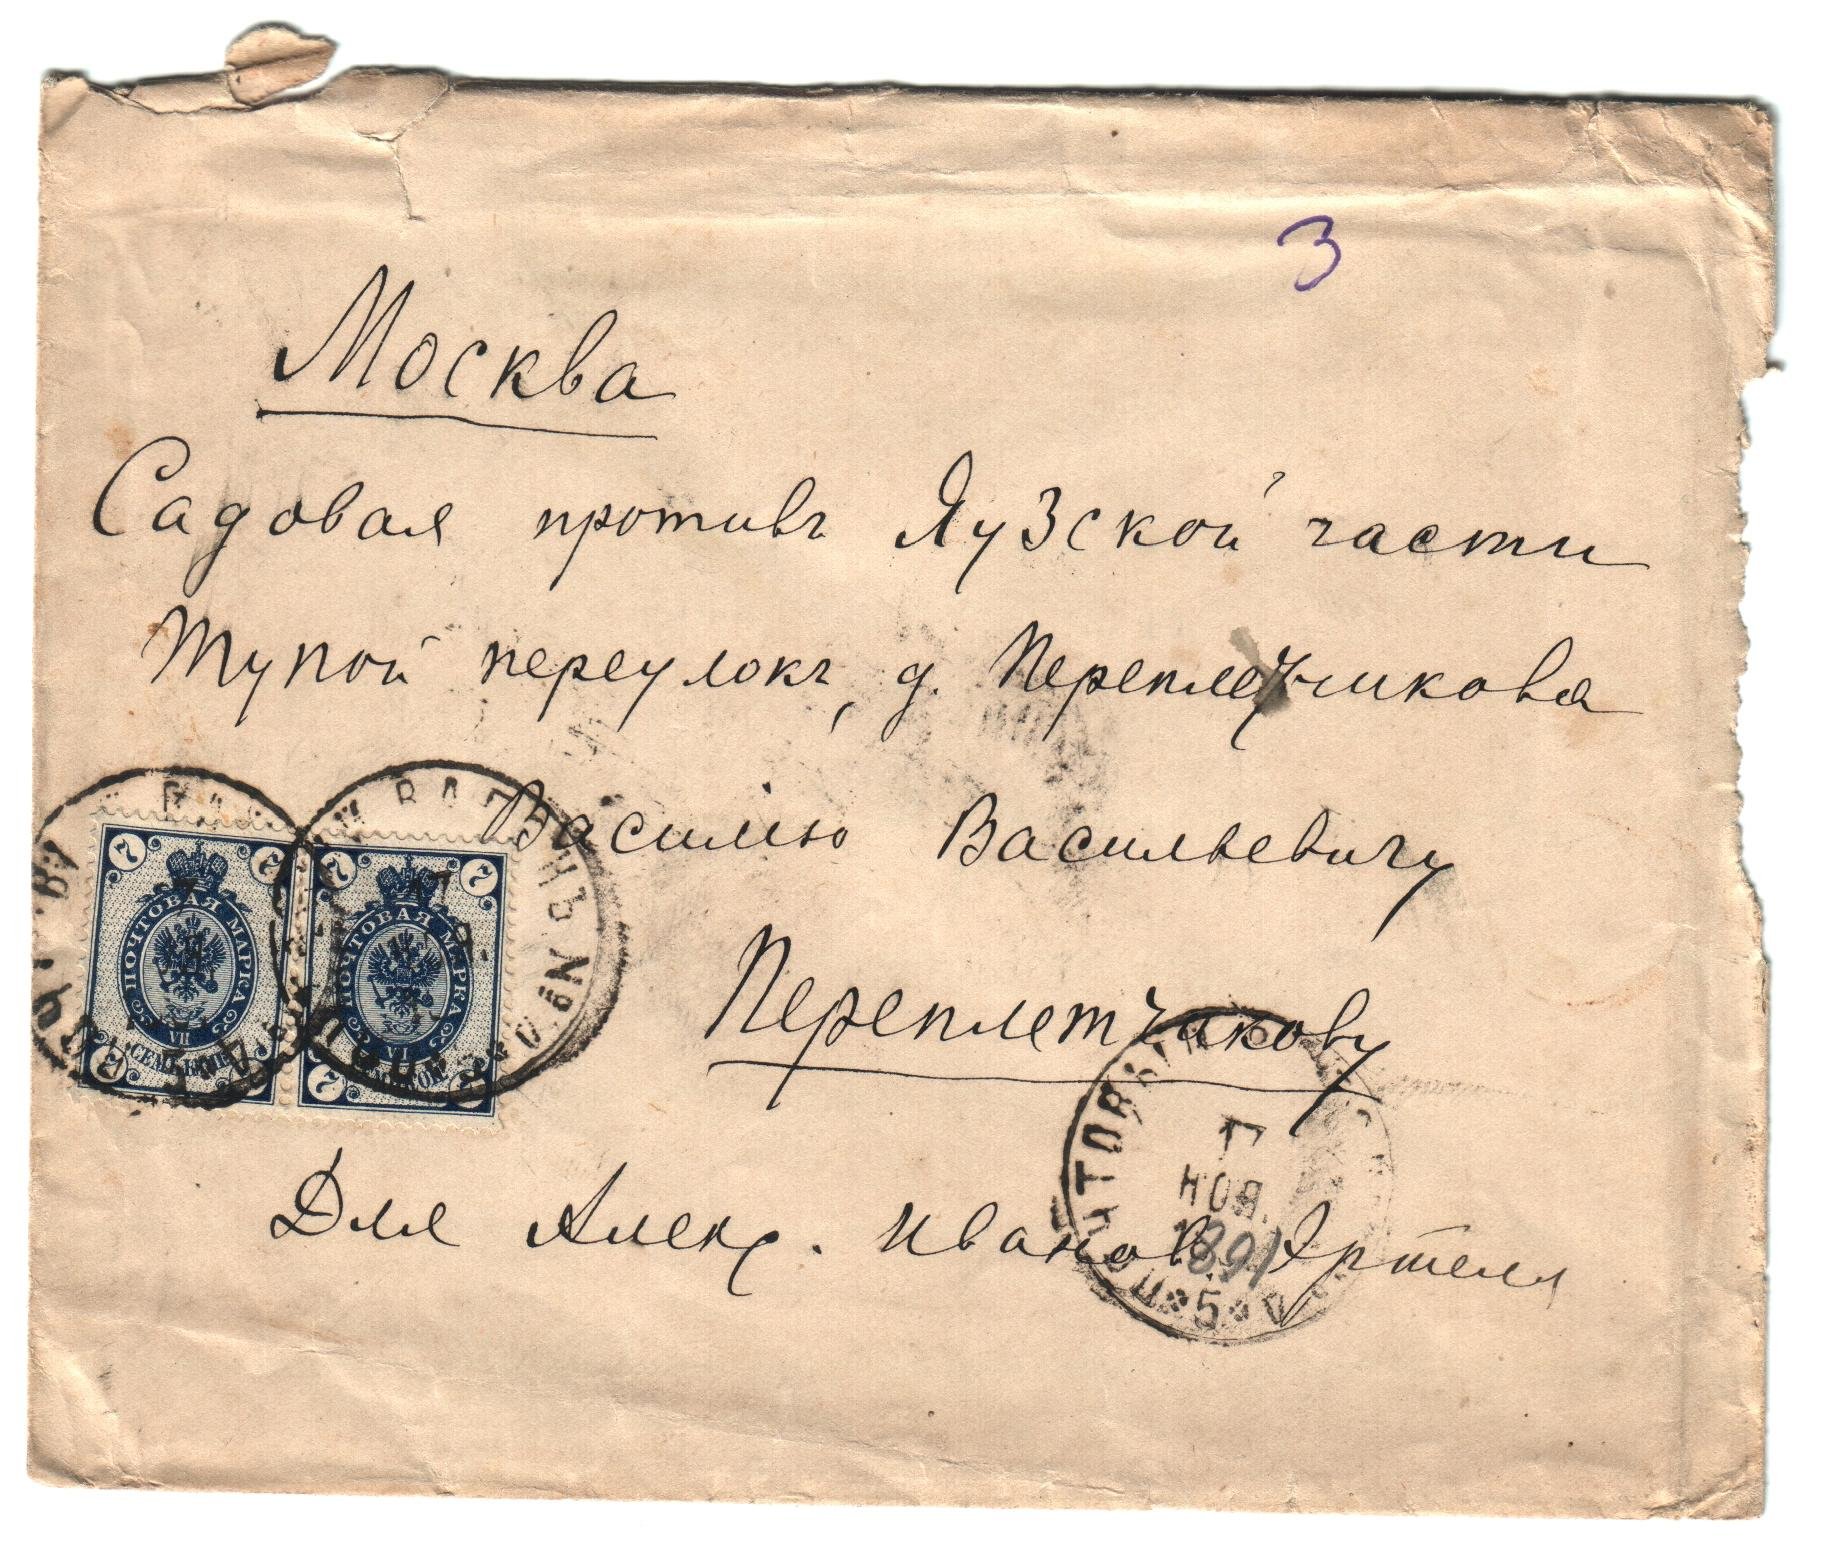 3
Москва
Садовая противъ Яузской части
Тупой переулокъ, д. Переплетчикова
Василію Васильевичу
Переплетчикову
Для Алекс. Иванов. Эртеля
7 7
ПОЧТОВАЯ МАРКА
VII
СЕМЬ КОП.
7 7
7 7
ПОЧТОВАЯ МАРКА
VII
СЕМЬ КОП.
7
ВАГОНЪ №
7
НОЯ.
1891
5